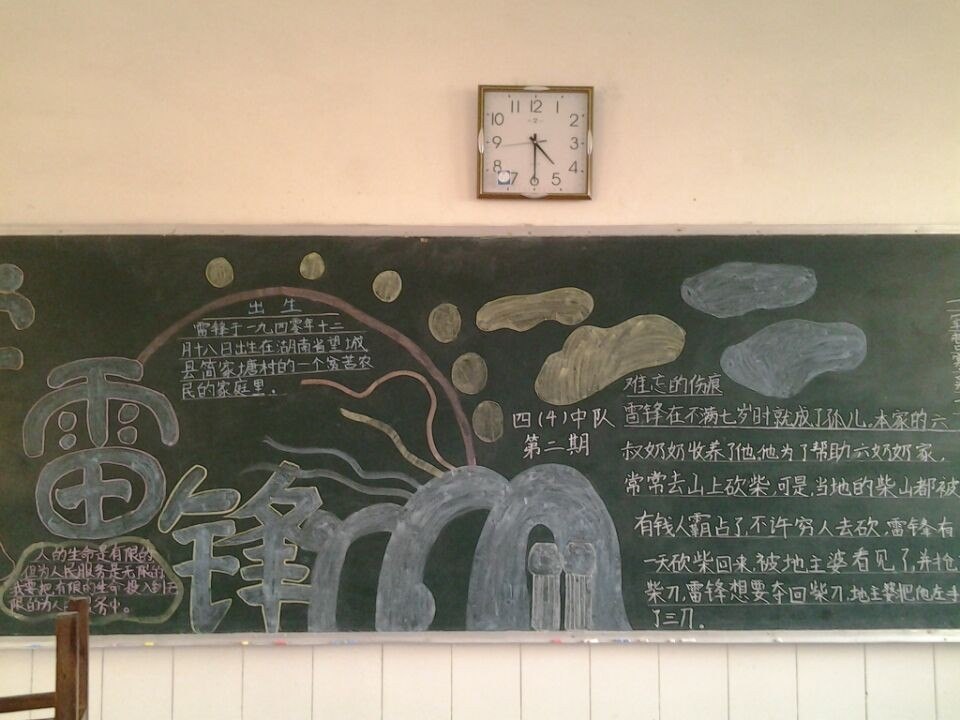 11 12 1
10 2
9 3
8 4
7 6 5
出生
雷锋于一九四零年十二
月十八日出生在湖南省望城
县简家塘村的一个贫苦农
民的家庭里。
雷
锋
人的生命是有限的
但为人民服务是无限的
我要把有限的生命投入到无
限的为人
四(4)中队
第二期
难忘的伤痕
雷锋在不满七岁时就成了孤儿.本家的六
叔奶奶收养了他.他为了帮助六奶奶家,
常常去山上砍柴.可是,当地的柴山都被
有钱人霸占了.不许穷人去砍.雷锋有
一天砍柴回来.被地主婆看见了,并抢
柴刀.雷锋想要夺回柴刀.地主婆把他左手
了三刀.